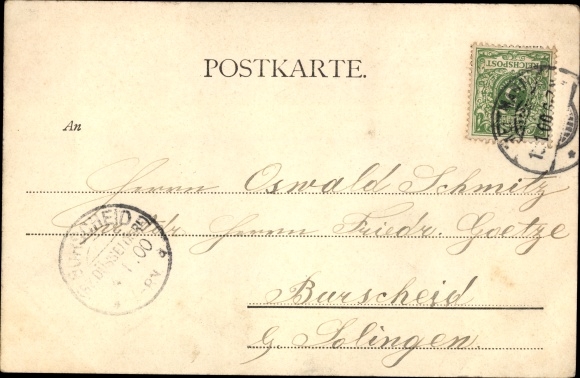 POSTKARTE.
REICHSPOST
An
Herrn Oswald Schmitz
Adr. Herrn Friedr. Goetze
Burscheid
b. Solingen.
BURSCHEID
(DÜSSELDORF)
1.00